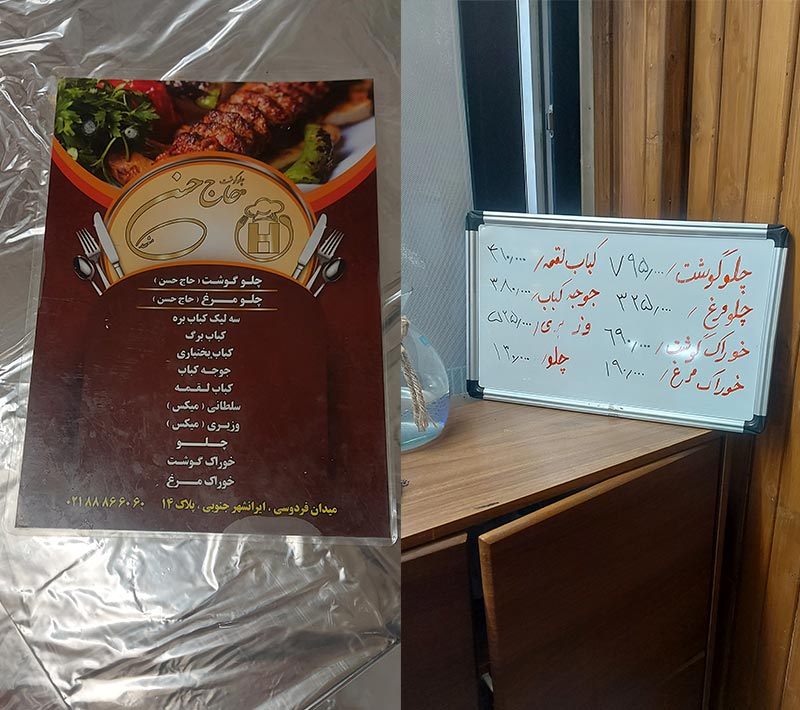 چلوگوشت
حاج حسن
چلو گوشت ( حاج حسن )
چلو مرغ ( حاج حسن )
سه لیک کباب بره
کباب برگ
کباب بختیاری
جوجه کباب
کباب لقمه
سلطانی ( میکس )
وزیری ( میکس )
چلو
خوراک گوشت
خوراک مرغ
میدان فردوسی ، ایرانشهر جنوبی ، پلاک ۱۴ ۰۲۱ ۸۸ ۸۶ ۶۰ ۶۰
چلوگوشت/ ۷۹۵/۰۰۰ کباب لقمه/ ۴۱۰/۰۰۰
چلومرغ / ۳۲۵/۰۰۰ جوجه کباب/ ۳۸۰/۰۰۰
خوراک گوشت/ ۶۹۰/۰۰۰ وزیری/ ۵۲۵/۰۰۰
خوراک مرغ/ ۱۹۰/۰۰۰ چلو/ ۱۳۰/۰۰۰